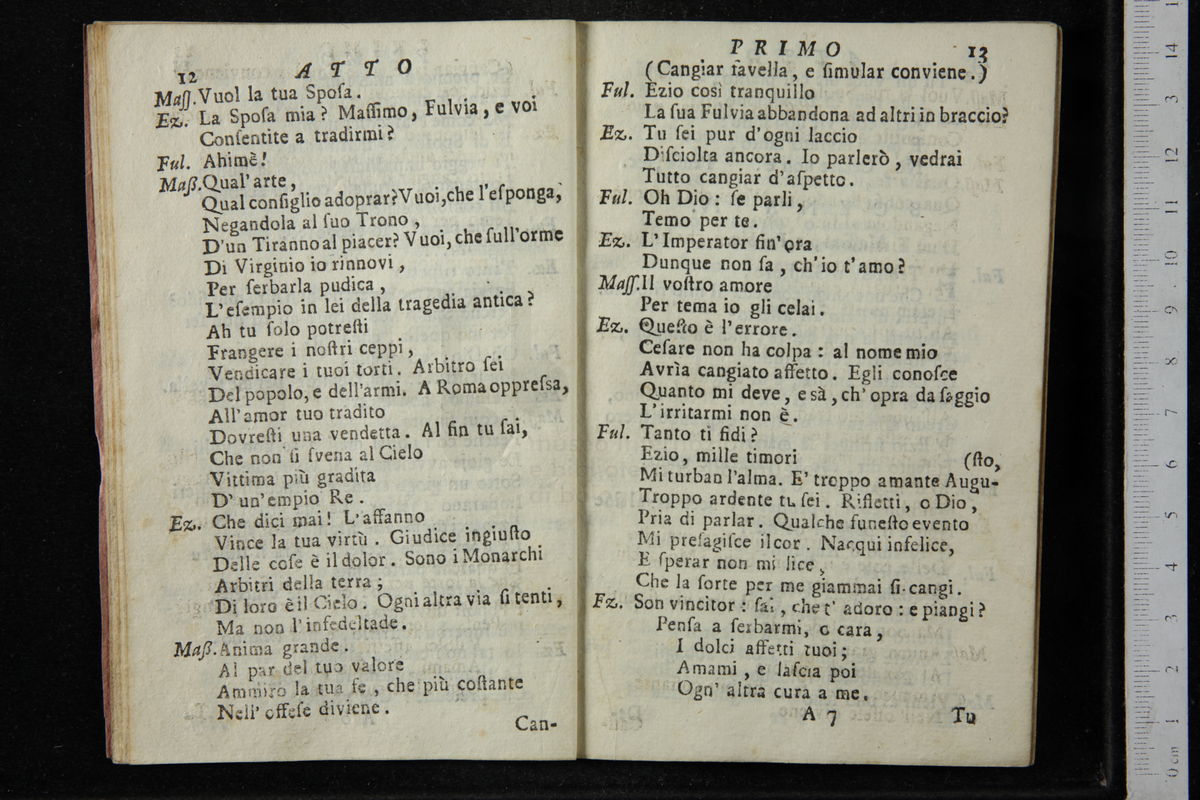 12 ATTO
Maſſ. Vuol la tua Spoſa.
Ez. La Spoſa mia? Maſſimo, Fulvia, e voi
Conſentite a tradirmi?
Ful. Ahimè!
Maß. Qual' arte,
Qual conſiglio adoprar? Vuoi, che l'eſponga,
Negandola al ſuo Trono,
D'un Tiranno al piacer? Vuoi, che ſull'orme
Di Virginio io rinnovi,
Per ſerbarla pudica,
L'eſempio in lei della tragedia antica?
Ah tu ſolo potreſti
Frangere i noſtri ceppi,
Vendicare i tuoi torti. Arbitro ſei
Del popolo, e dell'armi. A Roma oppreſsa,
All'amor tuo tradito
Dovreſti una vendetta. Al fin tu ſai,
Che non ſi ſvena al Cielo
Vittima più gradita
D'un'empio Re.
Ez. Che dici mai! L'affanno
Vince la tua virtù. Giudice ingiuſto
Delle coſe è il dolor. Sono i Monarchi
Arbitri della terra;
Di loro è il Cielo. Ogni altra via ſi tenti,
Ma non l'infedeltade.
Maß. Anima grande.
Al par del tuo valore
Ammiro la tua fe, che più coſtante
Nell' offeſe diviene.
Can-
PRIMO 13
(Cangiar favella, e ſimular conviene.)
Ful. Ezio così tranquillo
La ſua Fulvia abbandona ad altri in braccio?
Ez. Tu ſei pur d'ogni laccio
Diſciolta ancora. Io parlerò, vedrai
Tutto cangiar d'aſpetto.
Ful. Oh Dio: ſe parli,
Temo per te.
Ez. L'Imperator fin'ora
Dunque non ſa, ch'io t'amo?
Maſſ. Il voſtro amore
Per tema io gli celai.
Ez. Queſto è l'errore.
Ceſare non ha colpa: al nome mio
Avrìa cangiato affetto. Egli conoſce
Quanto mi deve, e sà, ch'opra da ſaggio
L'irritarmi non è.
Ful. Tanto ti fidi?
Ezio, mille timori (ſto,
Mi turban l'alma. E' troppo amante Augu-
Troppo ardente tu ſei. Rifletti, o Dio,
Pria di parlar. Qualche funeſto evento
Mi preſagiſce il cor. Nacqui infelice,
E ſperar non mi lice,
Che la ſorte per me giammai ſi cangi.
Ez. Son vincitor: ſai, che t'adoro: e piangi?
Penſa a ſerbarmi, o cara,
I dolci affetti tuoi;
Amami, e laſcia poi
Ogn'altra cura a me.
A 7 Tu